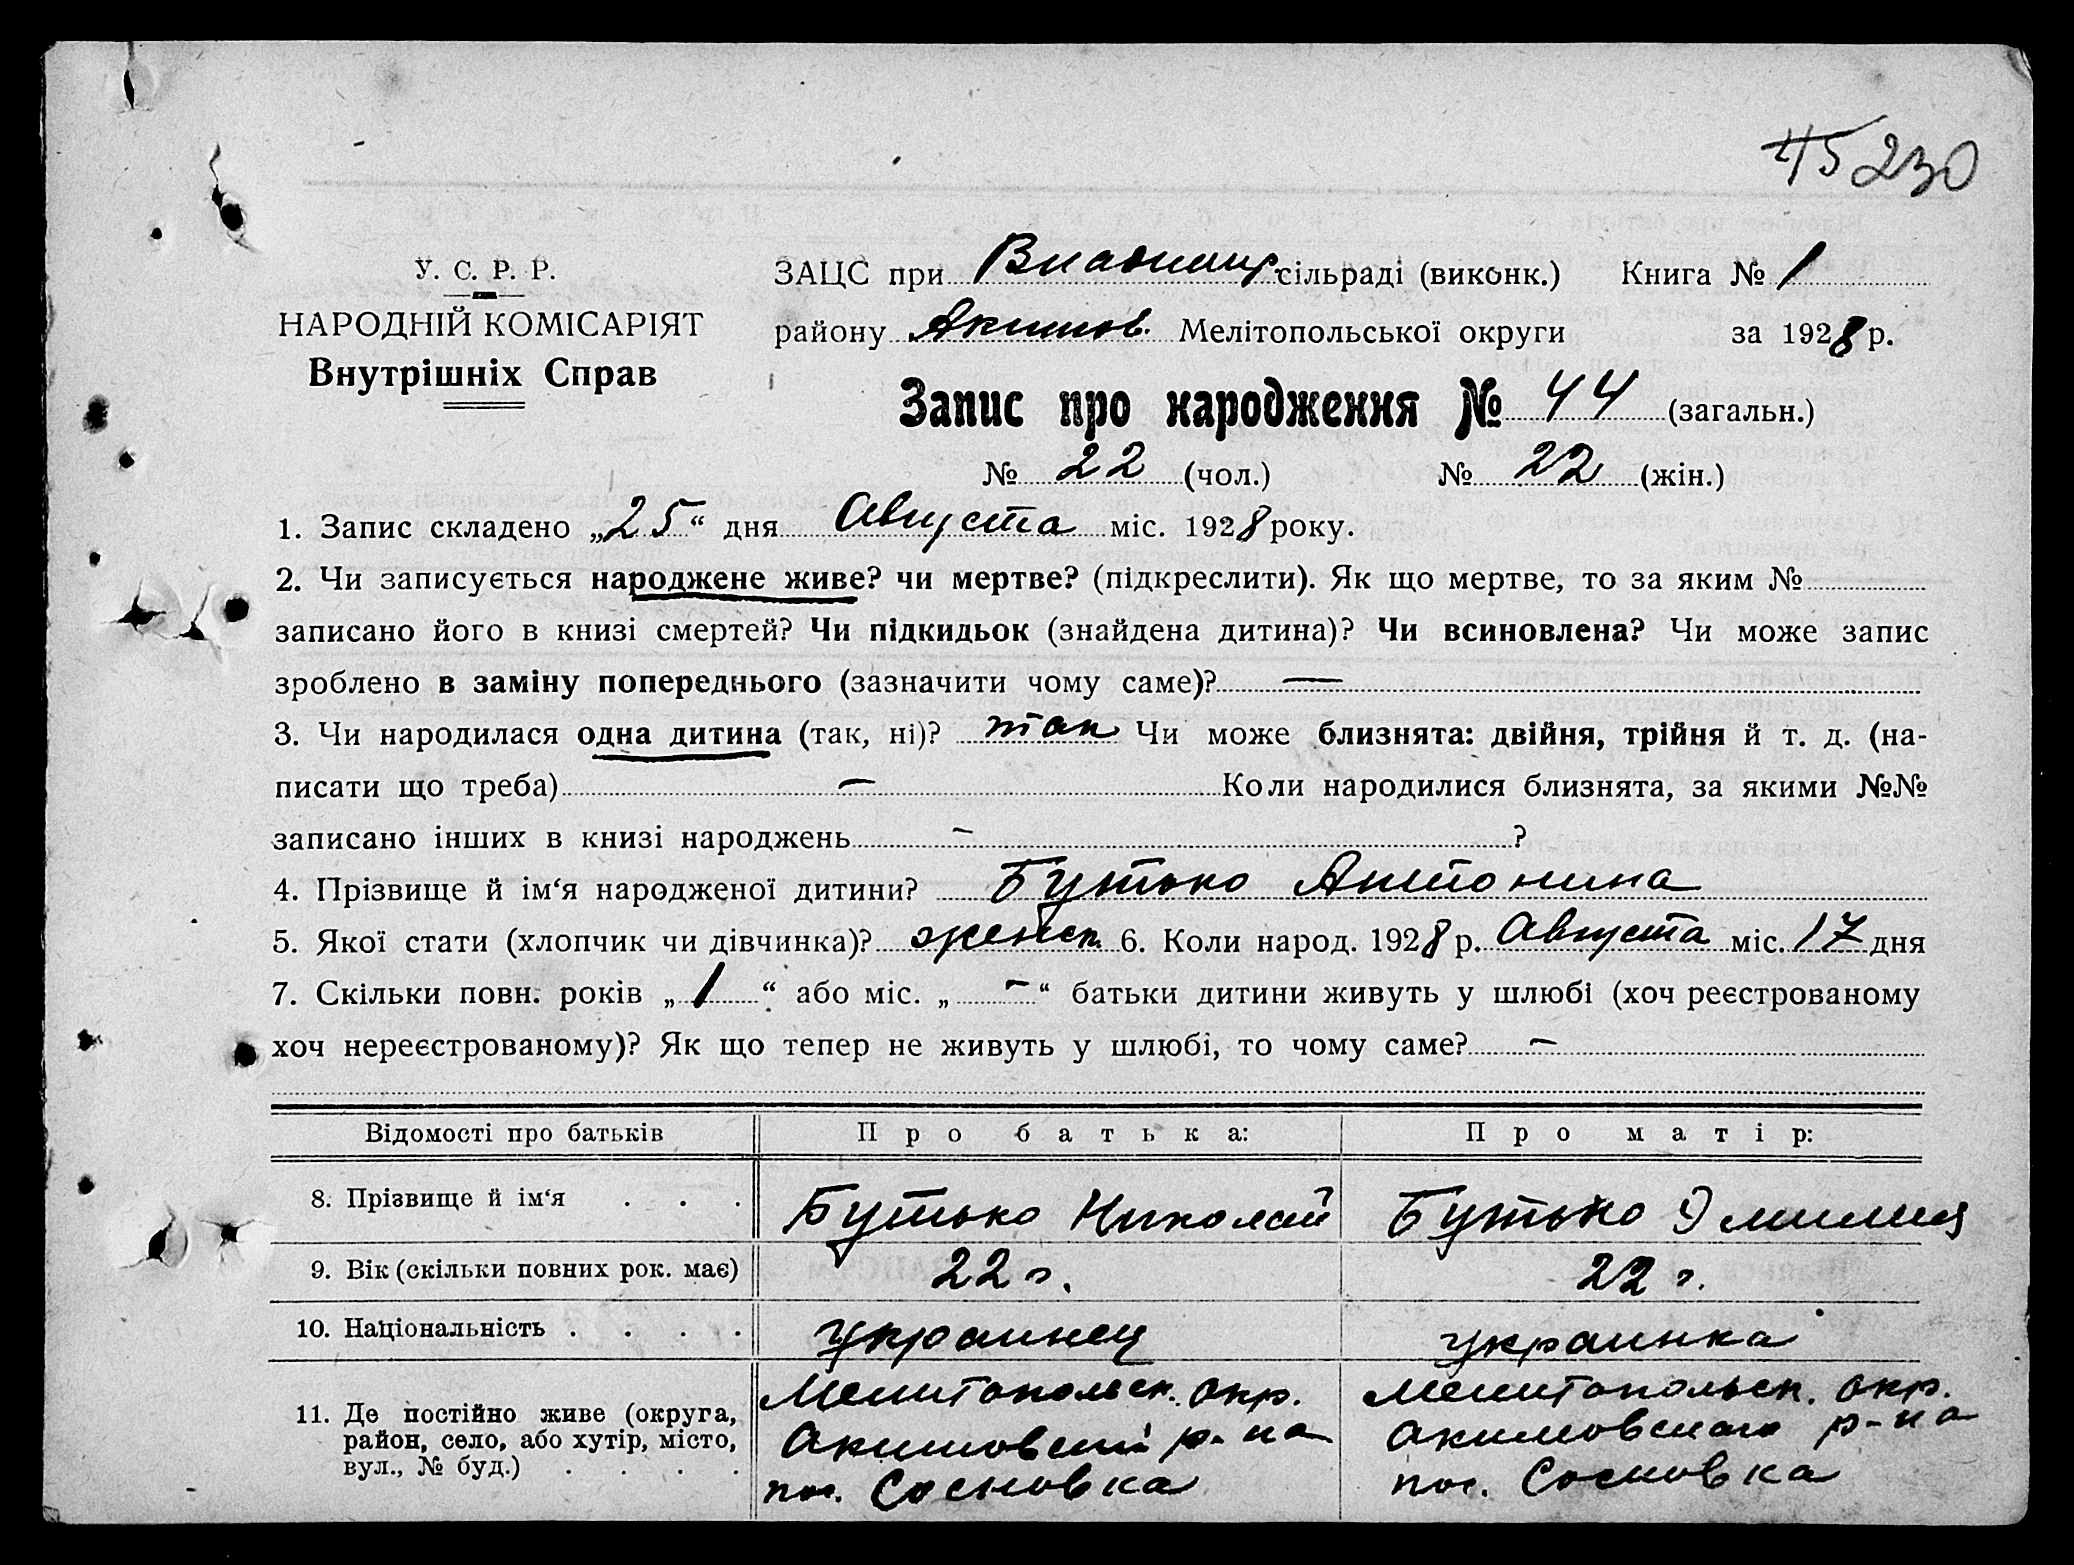 45 230
У. С. Р. Р.
НАРОДНІЙ КОМІСАРІЯТ
Внутрішніх Справ
ЗАЦС при Владимир. сільраді (виконк.) Книга № 1
району Акимов. Мелітопольської округи за 1928 р.
Запис про народження № 44 (загальн.)
№ 22 (чол.) № 22 (жін.)
1. Запис складено „25“ дня Августа міс. 1928 року.
2. Чи записується народжене живе? чи мертве? (підкреслити). Як що мертве, то за яким №
записано його в книзі смертей? Чи підкидьок (знайдена дитина)? Чи всиновлена? Чи може запис
зроблено в заміну попереднього (зазначити чому саме)? —
3. Чи народилася одна дитина (так, ні)? так Чи може близнята: двійня, трійня й т. д. (на-
писати що треба) — Коли народилися близнята, за якими №№
записано інших в книзі народжень — ?
4. Прізвище й ім‘я народженої дитини? Бутько Антонина
5. Якої стати (хлопчик чи дівчинка)? женск. 6. Коли народ. 1928 р. Августа міс. 17 дня
7. Скільки повн. років „1“ або міс. „ — “ батьки дитини живуть у шлюбі (хоч реєстрованому
хоч нереєстрованому)? Як що тепер не живуть у шлюбі, то чому саме? —
Відомості про батьків Про батька: Про матір:
8. Прізвище й ім‘я . . . Бутько Николай Бутько Эмилия
9. Вік (скільки повних рок. має) 22 г. 22 г.
10. Національність . . . . украинец украинка
11. Де постійно живе (округа, Мелитопольск. окр. Мелитопольск. окр.
район, село, або хутір, місто, Акимовский р-на Акимовского р-на
вул., № буд.) . . . . пос. Сосновка пос. Сосновка